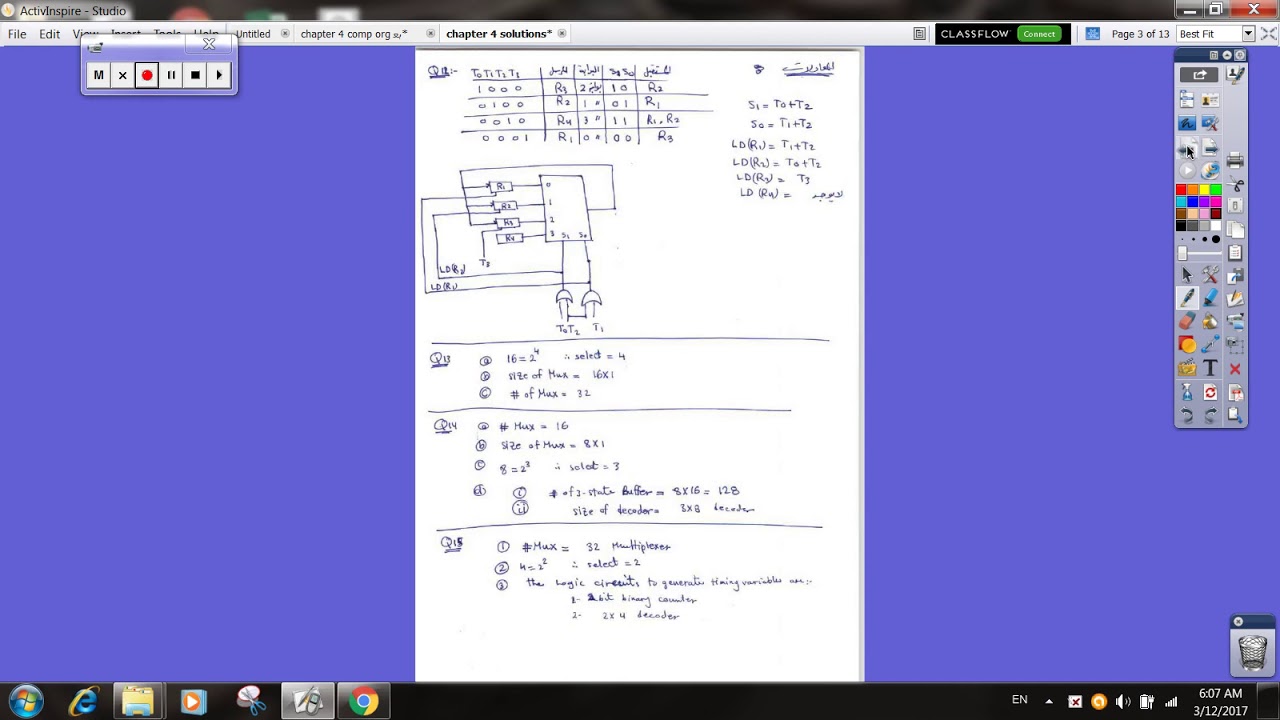 ActivInspire - Studio
File Edit View Insert Tools Help
Untitled
chapter 4 comp org
chapter 4 solutions*
CLASSFLOW Connect
Page 3 of 13
Best Fit
M
Q12:- T0 T1 T2 T3 المرسل البوابة S1 S0 المستقبل
1 0 0 0 R3 2 1 0 R2
0 1 0 0 R2 1 " 0 1 R1
0 0 1 0 R4 3 " 1 1 R1, R2
0 0 0 1 R1 0 " 0 0 R3
المعادلات
S1 = T0+T2
S0 = T1+T2
LD(R1) = T1+T2
LD(R2) = T0+T2
LD(R3) = T3
LD(R4) = لا يوجد
R1 0
R2 1
R3 2
R4 3 S1 S0
T3
LD(R2)
LD(R1)
T0 T2 T1
Q13 a 16 = 2^4 ∴ select = 4
b size of Mux = 16x1
c # of Mux = 32
Q14 a # Mux = 16
b size of Mux = 8x1
c 8 = 2^3 ∴ select = 3
d i # of 3-state Buffer = 8x16 = 128
ii size of decoder = 3x8 decoder
Q15 1 #Mux = 32 Multiplexer
2 4 = 2^2 ∴ select = 2
3 the Logic circuits to generate timing variables are:-
1- 2bit binary counter
2- 2x4 decoder
EN
6:07 AM
3/12/2017